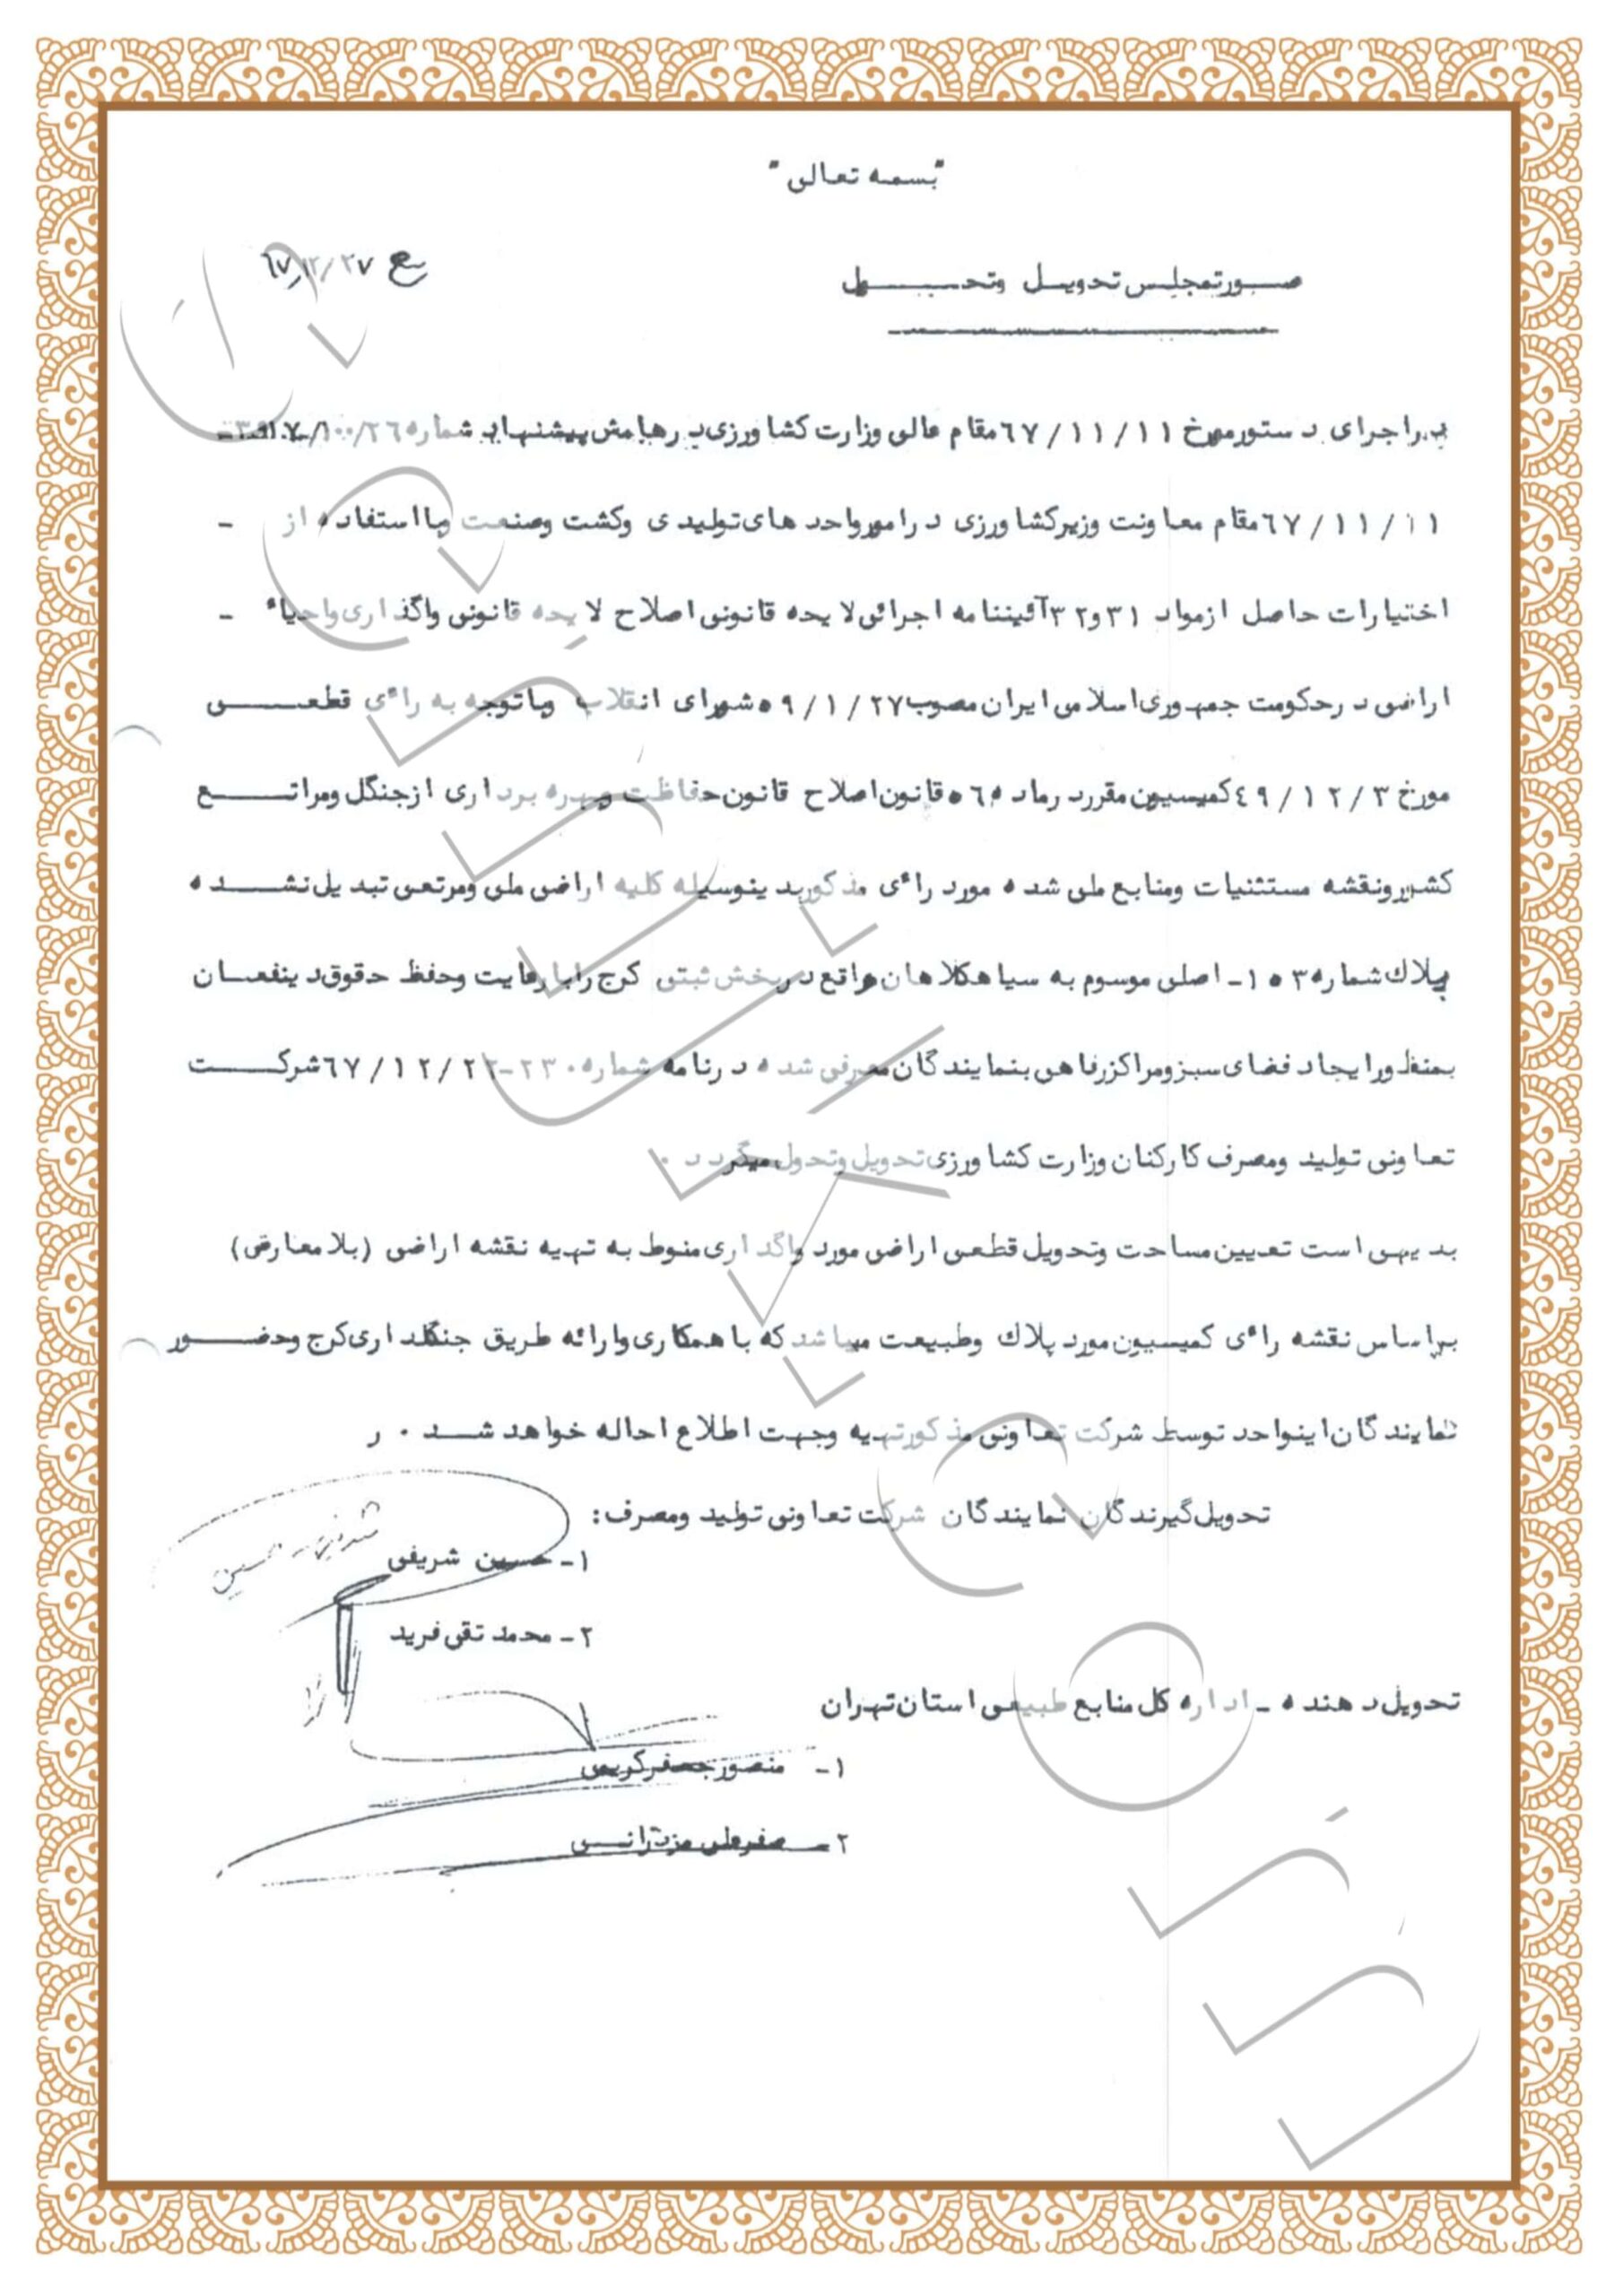 "بسمه تعالی"
٦٧/١٢/٢٧
صورتمجلس تحویل وتحول
در اجرای دستورمورخ ٦٧/١١/١١ مقام عالی وزارت کشاورزی در هامش پیشنهاد شماره
٦٧/١١/١١ مقام معاونت وزیرکشاورزی در امور واحد های تولیدی وکشت وصنعت وبا استفاده از -
اختیارات حاصل ازمواد ٣١ و ٣٢ آئیننامه اجرائی لایحه قانونی اصلاح لایحه قانونی واگذاری واحیاء -
اراضی در حکومت جمهوری اسلامی ایران مصوب ٥٩/١/٢٧ شورای انقلاب وباتوجه به رأی قطعی
مورخ ٤٩/١٢/٣ کمیسیون مقرر در ماده ٥٦ قانون اصلاح قانون حفاظت وبهره برداری ازجنگل ومراتع
کشور ونقشه مستثنیات ومنابع ملی شده مورد رأی مذکور بدینوسیله کلیه اراضی ملی ومرتعی تبدیل نشده
پلاک شماره ١٥٣ - اصلی موسوم به سیاهکلاهان واقع در بخش ثبتی کرج را با رعایت وحفظ حقوق ذینفعان
بمنظور ایجاد فضای سبز ومراکز رفاهی بنمایندگان معرفی شده در نامه شماره ٢٣٠-٦٧/١٢/٢٢ شرکت
تعاونی تولید ومصرف کارکنان وزارت کشاورزی تحویل وتحول میگردد .
بدیهی است تعیین مساحت وتحویل قطعی اراضی مورد واگذاری منوط به تهیه نقشه اراضی (بلامعارض)
براساس نقشه رأی کمیسیون مورد پلاک وطبیعت میباشد که با همکاری وارائه طریق جنگلداری کرج وحضور
نمایندگان اینواحد توسط شرکت تعاونی مذکور تهیه وجهت اطلاع احاله خواهد شد . ر
تحویل گیرندگان نمایندگان شرکت تعاونی تولید ومصرف :
١ - حسین شریفی
٢ - محمد تقی فرید
تحویل دهنده - اداره کل منابع طبیعی استان تهران
١ - منصور جعفر کریمی
٢ - صفرعلی